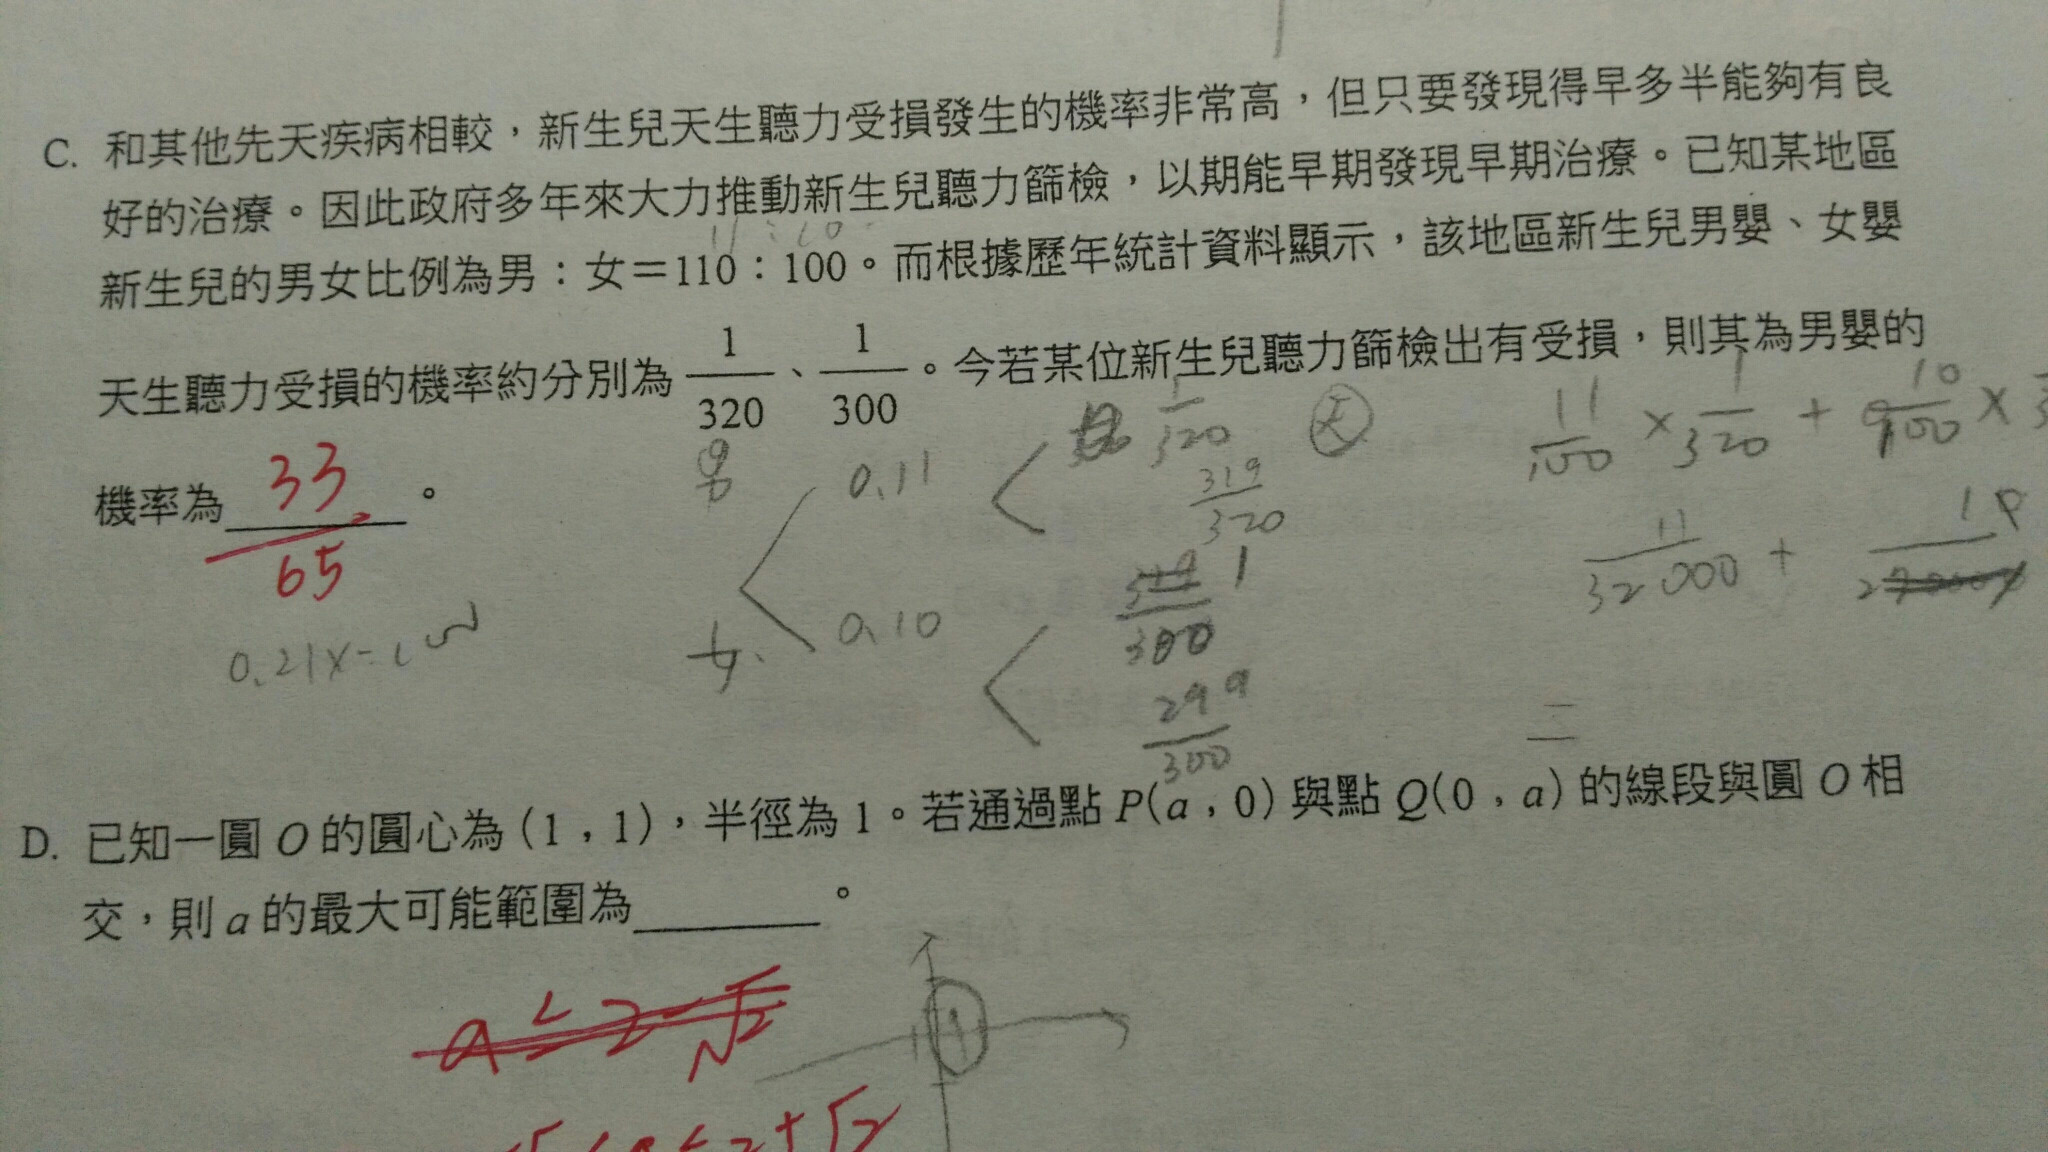 C. 和其他先天疾病相較，新生兒天生聽力受損發生的機率非常高，但只要發現得早多半能夠有良
好的治療。因此政府多年來大力推動新生兒聽力篩檢，以期能早期發現早期治療。已知某地區
11：10
新生兒的男女比例為男：女＝110：100。而根據歷年統計資料顯示，該地區新生兒男嬰、女嬰
天生聽力受損的機率約分別為 1/320、1/300。今若某位新生兒聽力篩檢出有受損，則其為男嬰的
機率為 33/65 。
男 0.11 1/320
319/320
女 0.10 1/300
299/300
11/100 × 1/320 + 10/100 ×
11/32000 +
0.21x=
D. 已知一圓 O 的圓心為 (1，1)，半徑為 1。若通過點 P(a，0) 與點 Q(0，a) 的線段與圓 O 相
交，則 a 的最大可能範圍為 。
a ≤ 2-√2
≤ 2+√2